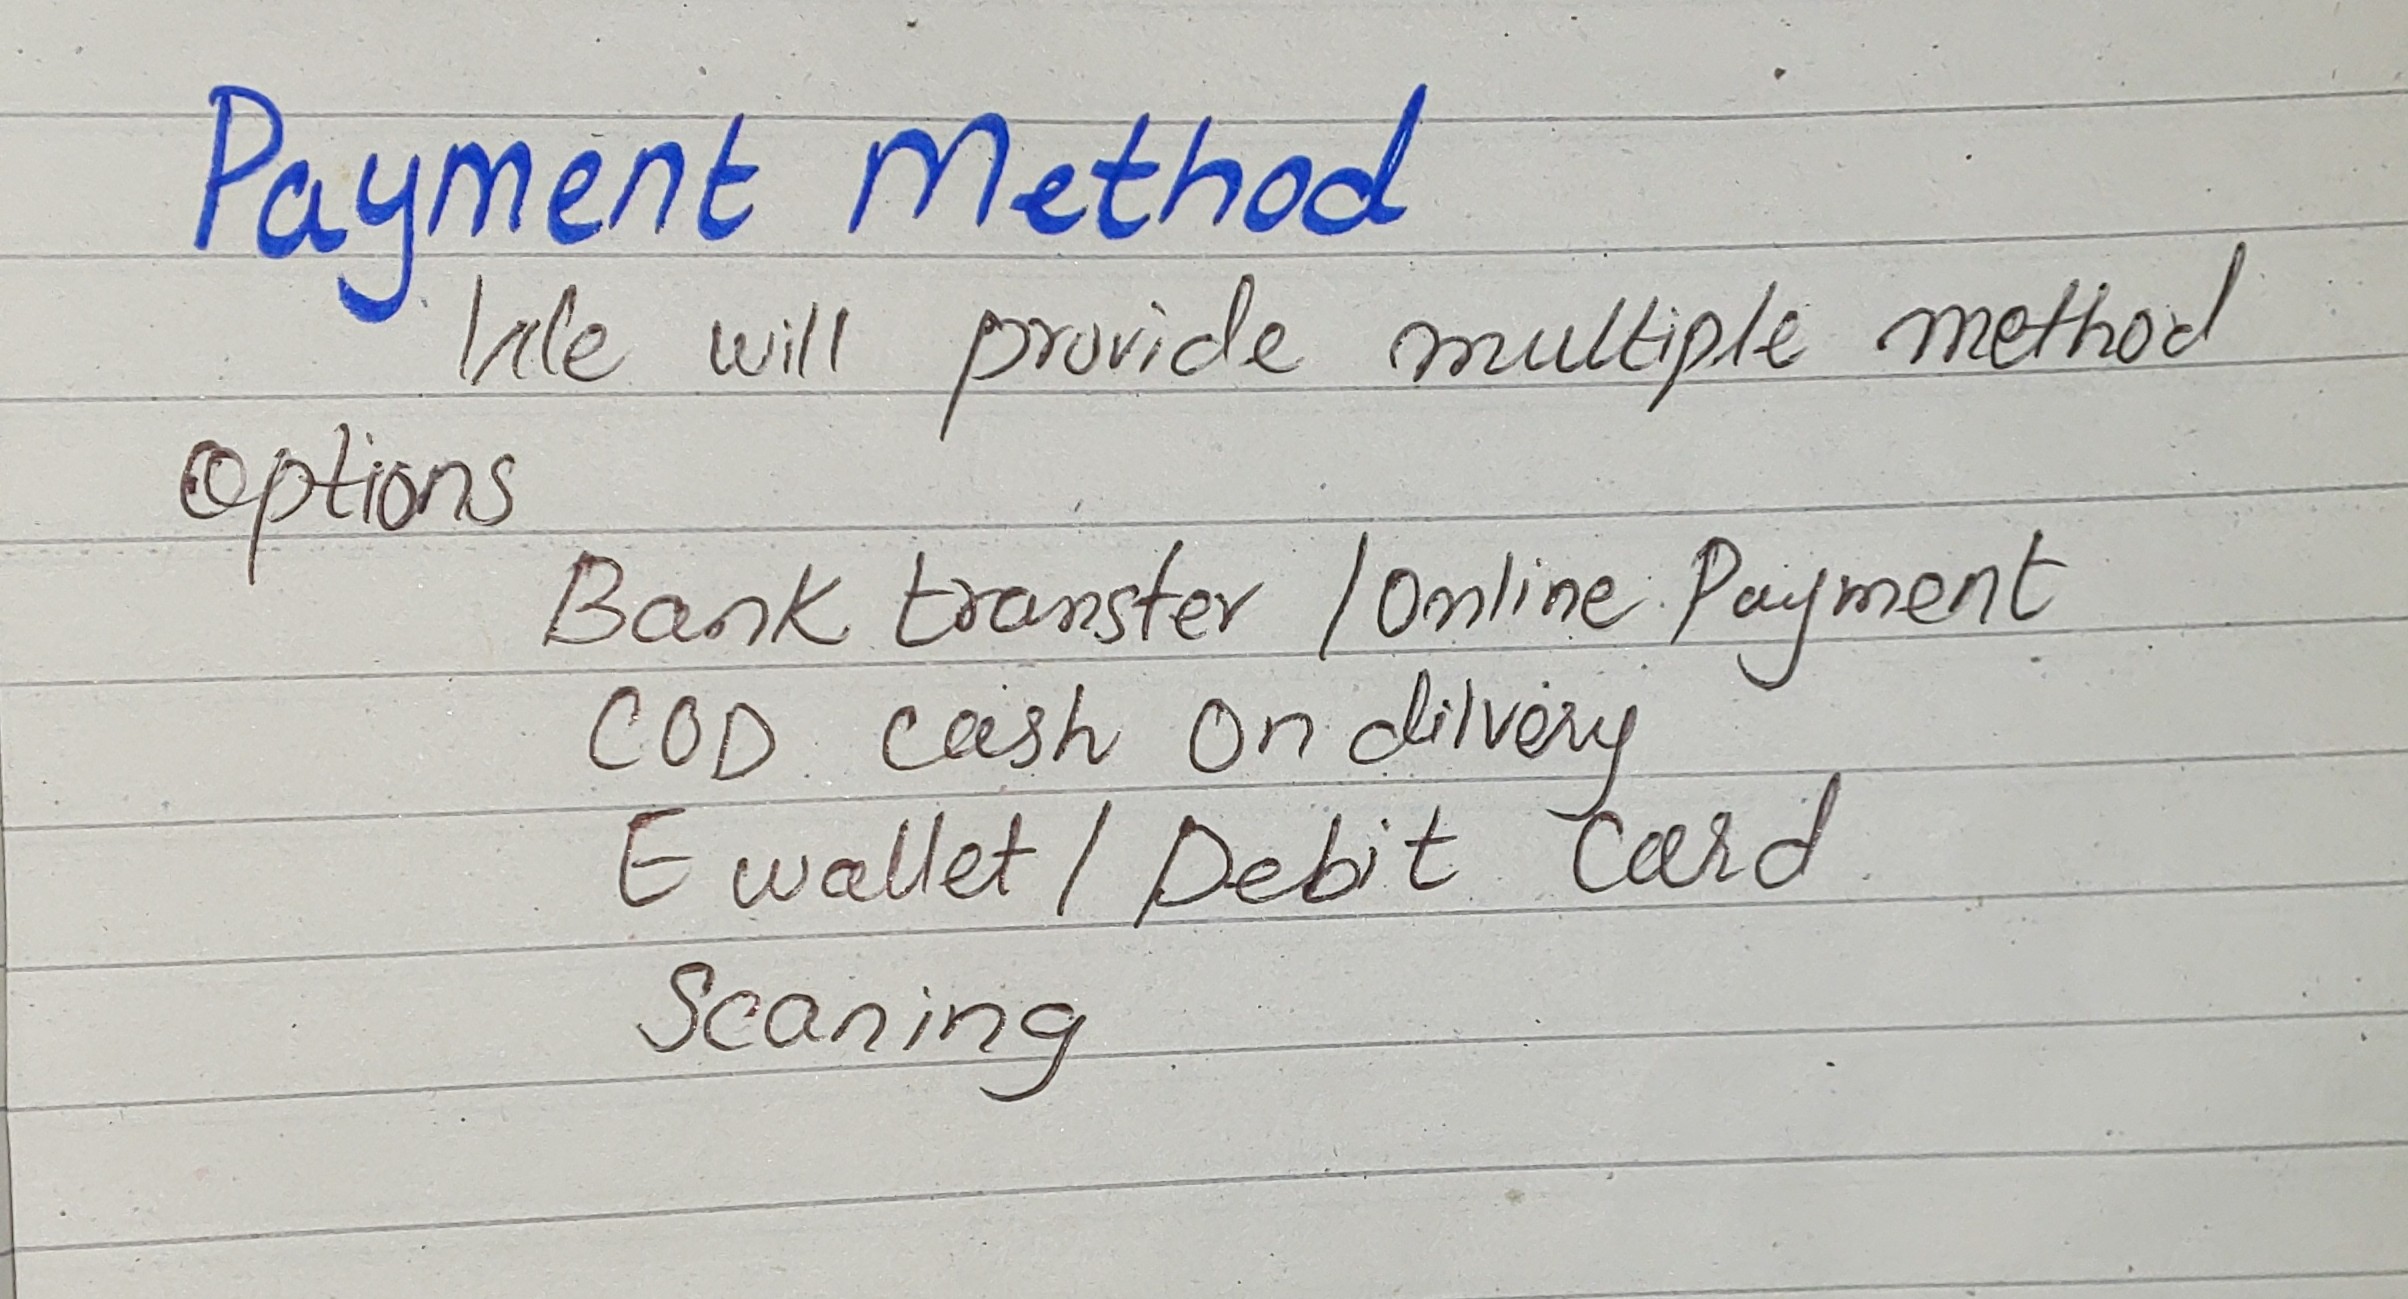 Payment Method
We will provide multiple method
options
Bank transfer / Online Payment
COD cash on dilvery
E wallet / Debit Card
Scaning